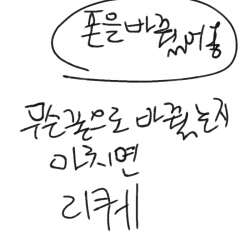 폰을 바꿨어용
무슨폰으로 바꿨는지
마추면
리퀘